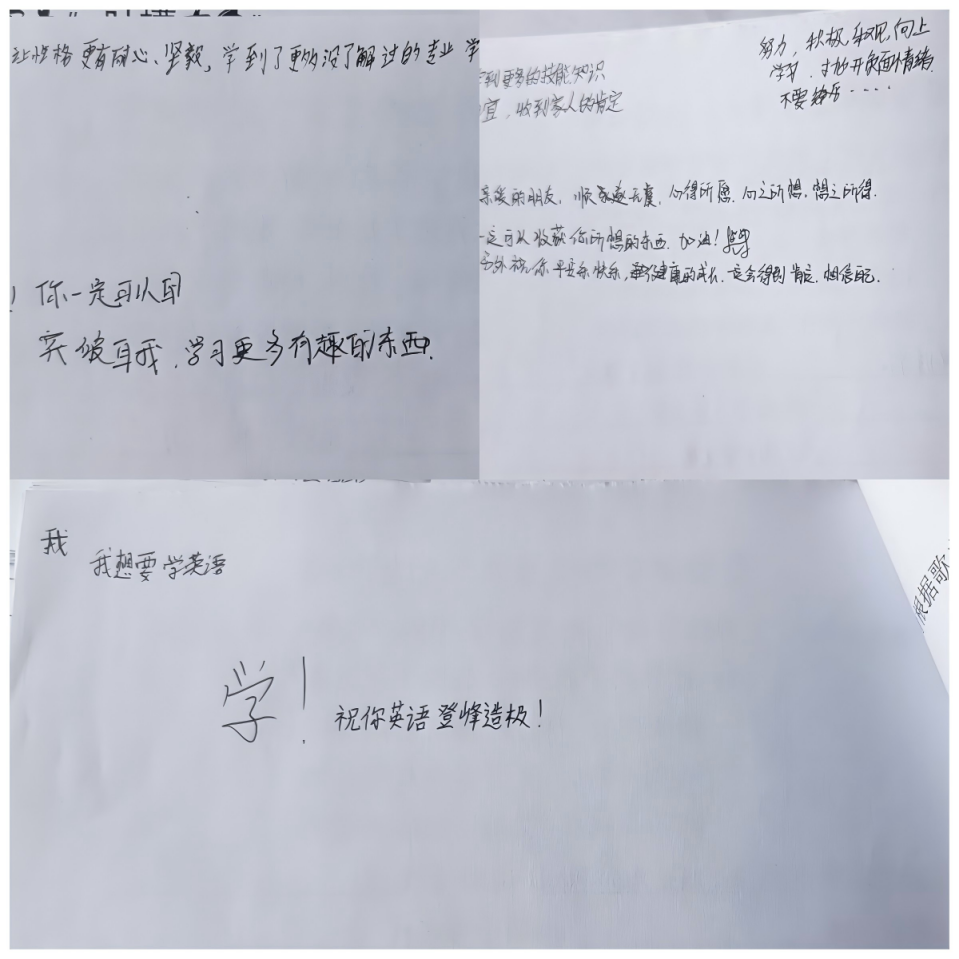 让性格更有耐心、坚毅，学到了更多没了解过的专业 学
你一定可以早
突破自我，学习更多有趣的东西.
到更多的技能知识
宜，收到家人的肯定
努力，积极，乐观，向上
学习，抛开负面情绪
不要
亲爱的朋友，顺遂无虞，心得所愿，心之所想，想之所得.
一定可以收获你所想的东西. 加油！
另外祝你平安乐快乐，健康的成长，一定会得到肯定，相信自己.
我
我想要学英语
学！
祝你英语登峰造极！
根据歌